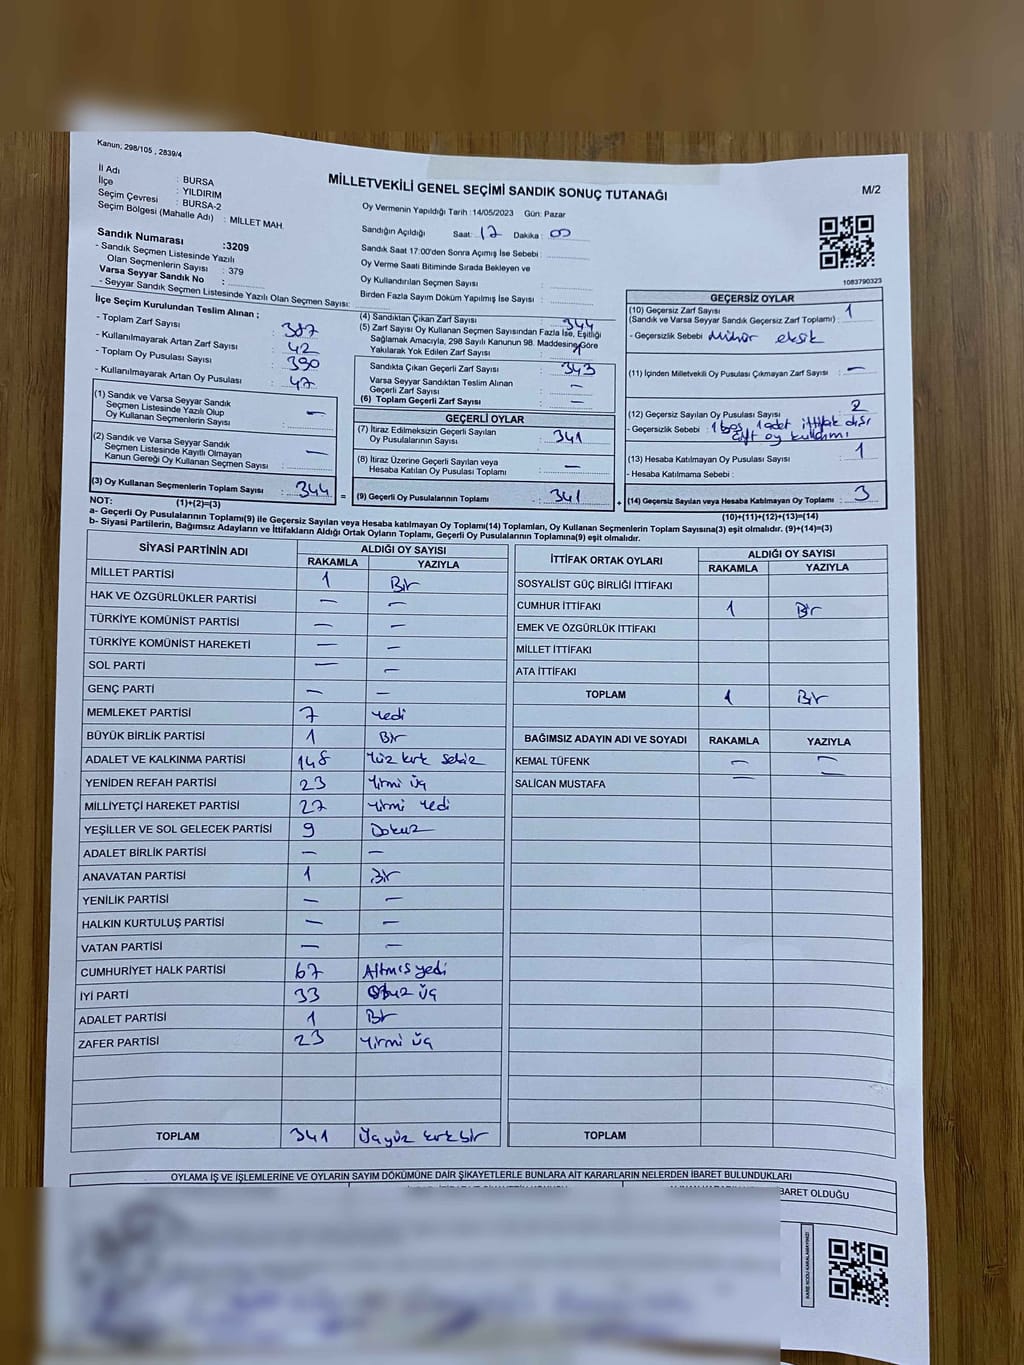 Kanun, 298/105 , 2839/4
MİLLETVEKİLİ GENEL SEÇİMİ SANDIK SONUÇ TUTANAĞI
M/2
İl Adı : BURSA
İlçe : YILDIRIM
Seçim Çevresi : BURSA-2
Seçim Bölgesi (Mahalle Adı) : MİLLET MAH.
Sandık Numarası :3209
- Sandık Seçmen Listesinde Yazılı
Olan Seçmenlerin Sayısı : 379
Varsa Seyyar Sandık No :
- Seyyar Sandık Seçmen Listesinde Yazılı Olan Seçmen Sayısı:
Oy Vermenin Yapıldığı Tarih :14/05/2023 Gün: Pazar
Sandığın Açıldığı Saat: 17 Dakika : 00
Sandık Saat 17:00'den Sonra Açımış İse Sebebi :
Oy Verme Saati Bitiminde Sırada Bekleyen ve
Oy Kullandırılan Seçmen Sayısı :
Birden Fazla Sayım Döküm Yapılmış İse Sayısı :
1083790323
İlçe Seçim Kurulundan Teslim Alınan ;
- Toplam Zarf Sayısı : 387
- Kullanılmayarak Artan Zarf Sayısı : 42
- Toplam Oy Pusulası Sayısı : 390
- Kullanılmayarak Artan Oy Pusulası : 47
(1) Sandık ve Varsa Seyyar Sandık
Seçmen Listesinde Yazılı Olup
Oy Kullanan Seçmenlerin Sayısı : —
(2) Sandık ve Varsa Seyyar Sandık
Seçmen Listesinde Kayıtlı Olmayan
Kanun Gereği Oy Kullanan Seçmen Sayısı : —
(3) Oy Kullanan Seçmenlerin Toplam Sayısı : 344 =
(1)+(2)=(3)
(4) Sandıktan Çıkan Zarf Sayısı : 344
(5) Zarf Sayısı Oy Kullanan Seçmen Sayısından Fazla İse, Eşitliği
Sağlamak Amacıyla, 298 Sayılı Kanunun 98. Maddesine Göre
Yakılarak Yok Edilen Zarf Sayısı :
Sandıkta Çıkan Geçerli Zarf Sayısı : 343
Varsa Seyyar Sandıktan Teslim Alınan
Geçerli Zarf Sayısı : —
(6) Toplam Geçerli Zarf Sayısı : —
GEÇERLİ OYLAR
(7) İtiraz Edilmeksizin Geçerli Sayılan
Oy Pusulalarının Sayısı : 341
(8) İtiraz Üzerine Geçerli Sayılan veya
Hesaba Katılan Oy Pusulası Toplamı : —
(9) Geçerli Oy Pusulalarının Toplamı : 341 +
GEÇERSİZ OYLAR
(10) Geçersiz Zarf Sayısı 1
(Sandık ve Varsa Seyyar Sandık Geçersiz Zarf Toplamı) :
- Geçersizlik Sebebi : Mühür eksik
(11) İçinden Milletvekili Oy Pusulası Çıkmayan Zarf Sayısı : —
(12) Geçersiz Sayılan Oy Pusulası Sayısı : 2
- Geçersizlik Sebebi : 1 boş 1 adet ittifak dışı
çift oy kullanımı
(13) Hesaba Katılmayan Oy Pusulası Sayısı : 1
- Hesaba Katılmama Sebebi :
(14) Geçersiz Sayılan veya Hesaba Katılmayan Oy Toplamı : 3
(10)+(11)+(12)+(13)=(14)
NOT:
a- Geçerli Oy Pusulalarının Toplamı(9) ile Geçersiz Sayılan veya Hesaba katılmayan Oy Toplamı(14) Toplamları, Oy Kullanan Seçmenlerin Toplam Sayısına(3) eşit olmalıdır. (9)+(14)=(3)
b- Siyasi Partilerin, Bağımsız Adayların ve İttifakların Aldığı Ortak Oyların Toplamı, Geçerli Oy Pusulalarının Toplamına(9) eşit olmalıdır.
SİYASİ PARTİNİN ADI ALDIĞI OY SAYISI
RAKAMLA YAZIYLA
MİLLET PARTİSİ 1 Bir
HAK VE ÖZGÜRLÜKLER PARTİSİ — —
TÜRKİYE KOMÜNİST PARTİSİ — —
TÜRKİYE KOMÜNİST HAREKETİ — —
SOL PARTİ — —
GENÇ PARTİ — —
MEMLEKET PARTİSİ 7 Yedi
BÜYÜK BİRLİK PARTİSİ 1 Bir
ADALET VE KALKINMA PARTİSİ 148 Yüz kırk sekiz
YENİDEN REFAH PARTİSİ 23 Yirmi üç
MİLLİYETÇİ HAREKET PARTİSİ 27 Yirmi Yedi
YEŞİLLER VE SOL GELECEK PARTİSİ 9 Dokuz
ADALET BİRLİK PARTİSİ — —
ANAVATAN PARTİSİ 1 Bir
YENİLİK PARTİSİ — —
HALKIN KURTULUŞ PARTİSİ — —
VATAN PARTİSİ — —
CUMHURİYET HALK PARTİSİ 67 Altmış yedi
İYİ PARTİ 33 Otuz üç
ADALET PARTİSİ 1 Bir
ZAFER PARTİSİ 23 Yirmi üç
TOPLAM 341 Üçyüz kırkbir
İTTİFAK ORTAK OYLARI ALDIĞI OY SAYISI
RAKAMLA YAZIYLA
SOSYALİST GÜÇ BİRLİĞİ İTTİFAKI
CUMHUR İTTİFAKI 1 Bir
EMEK VE ÖZGÜRLÜK İTTİFAKI
MİLLET İTTİFAKI
ATA İTTİFAKI
TOPLAM 1 Bir
BAĞIMSIZ ADAYIN ADI VE SOYADI RAKAMLA YAZIYLA
KEMAL TÜFENK — —
SALİCAN MUSTAFA — —
TOPLAM
OYLAMA İŞ VE İŞLEMLERİNE VE OYLARIN SAYIM DÖKÜMÜNE DAİR ŞİKAYETLERLE BUNLARA AİT KARARLARIN NELERDEN İBARET BULUNDUKLARI
İBARET OLDUĞU
KARE KODU KARALAMAYINIZ!